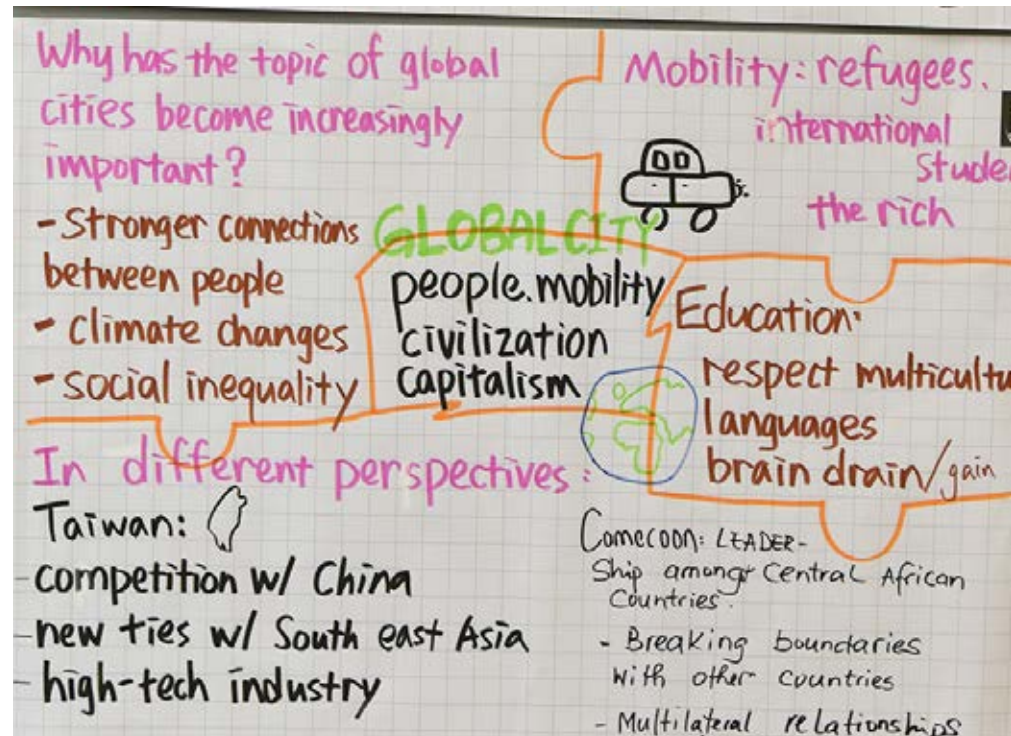 Why has the topic of global
cities become increasingly
important?
- Stronger connections
between people
- Climate changes
- social inequality
Mobility: refugees.
international
Stude
the rich
GLOBAL CITY
people.mobility
civilization
capitalism
Education:
respect multicultu
languages
brain drain/gain
In different perspectives:
Taiwan:
- competition w/ China
- new ties w/ South east Asia
- high-tech industry
Comecoon: LEADER-
Ship amongst Central African
Countries.
- Breaking boundaries
with other countries
- Multilateral relationships